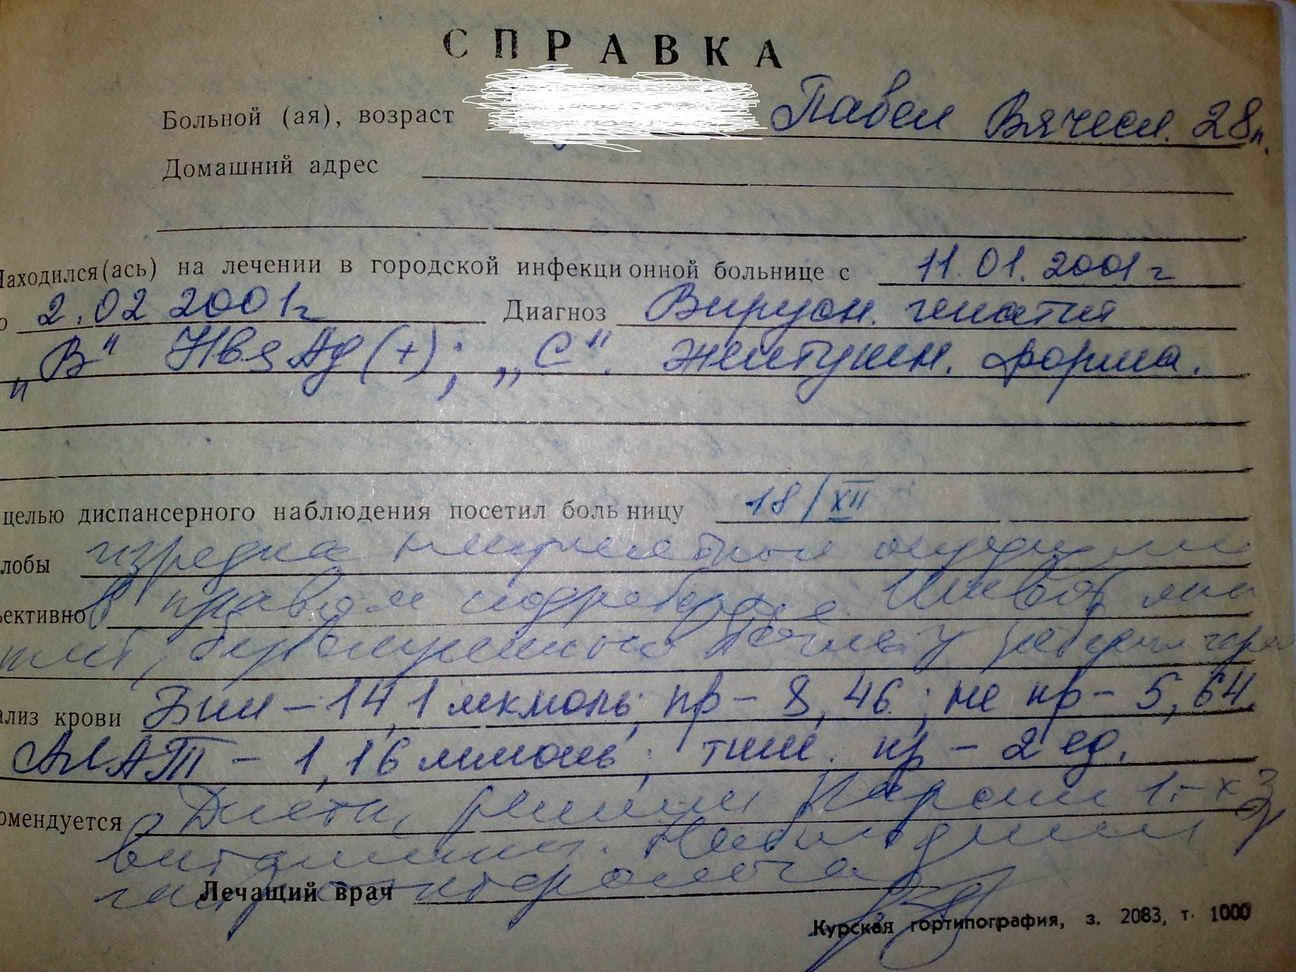 СПРАВКА
Больной (ая), возраст Павел Вячесл. 28л.
Домашний адрес
Находился(ась) на лечении в городской инфекционной больнице с 11.01.2001г
о 2.02 2001г Диагноз Вирусн. гепатит
„В" НВsАg(+); „С". Желтушн. форма.
целью диспансерного наблюдения посетил больницу 18/XII
лобы изредка неприятные ощущения
ективно в правом подреберье. Живот мяг
кий, безболезненный. Печень у реберн. края
ализ крови Бил – 14,1 мкмоль; пр – 8,46; не пр – 5,64
АлАТ – 1,16 ммоль; тим. пр – 2 ед.
омендуется Диета, режим, Карсил 1т х 3 р
витамины. Наблюдение
гастроэнтеролога
Лечащий врач
Курская гортипография, з. 2083, т. 1000